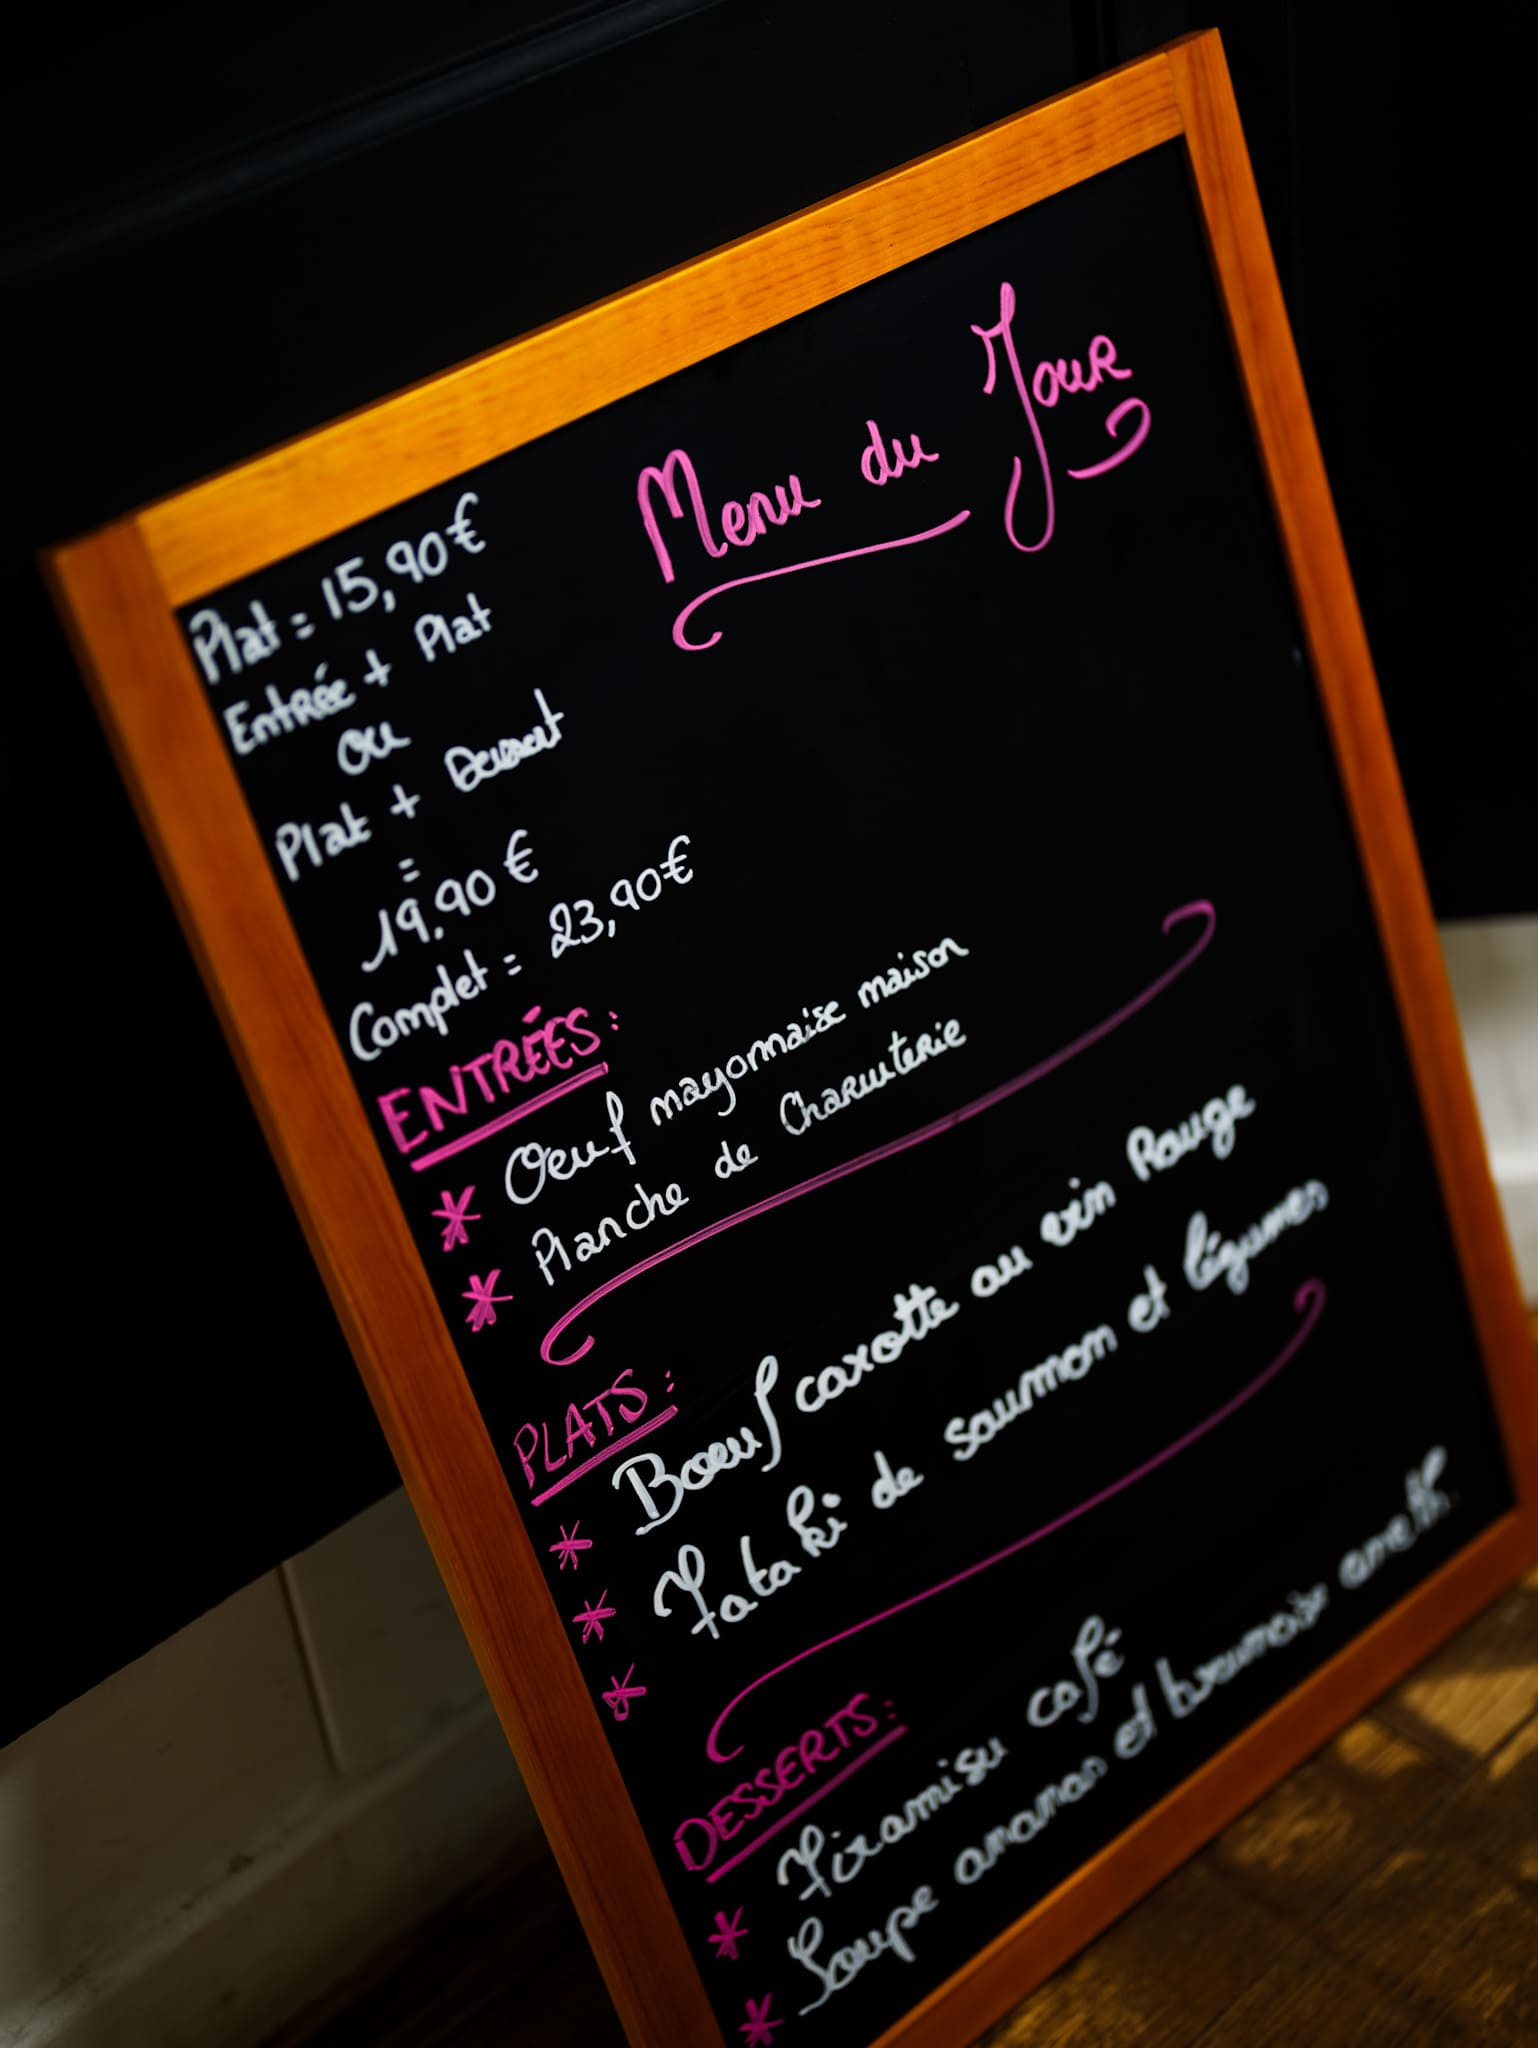 Menu du Jour
Plat = 15,90€
Entrée + Plat
ou
Plat + Dessert
=
19,90 €
Complet = 23,90€
ENTRÉES:
* Oeuf mayonnaise maison
* Planche de Charcuterie
PLATS:
* Boeuf carotte au vin Rouge
* Tataki de saumon et légumes
*
DESSERTS:
* Tiramisu café
* Soupe ananas et